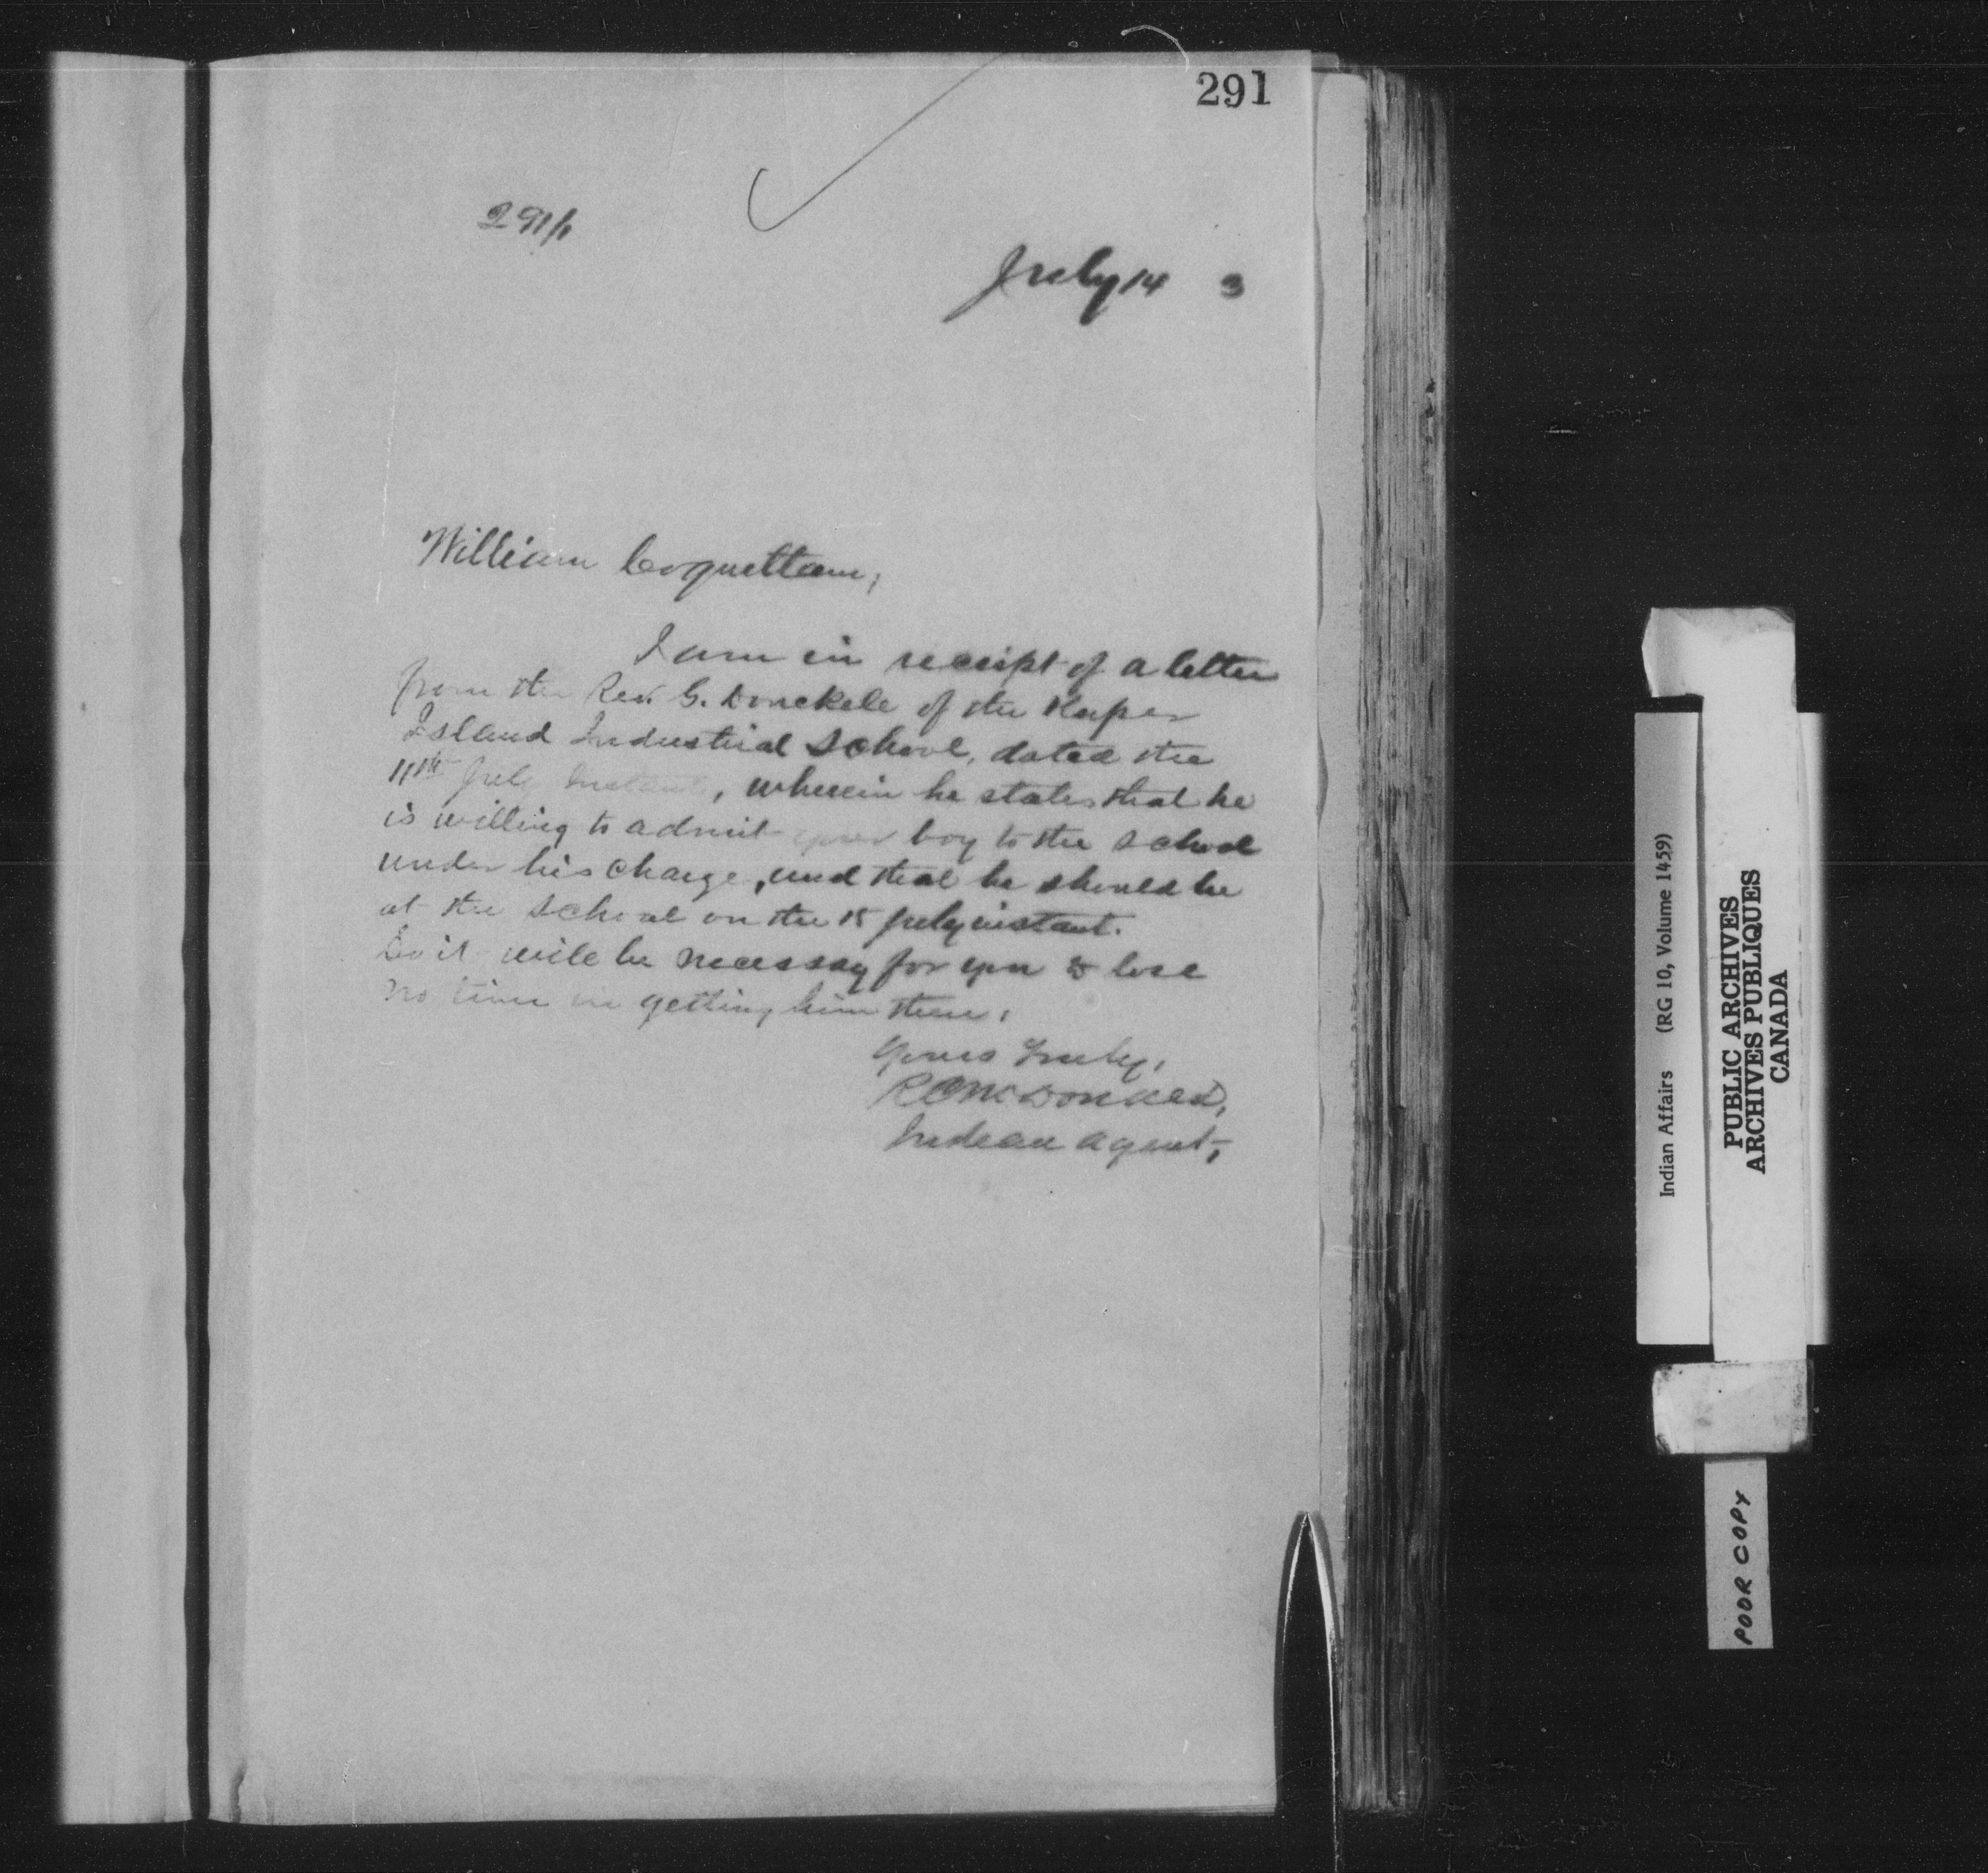 291
291/1
July 14 3
William Coquettam,
I am in receipt of a letter
from the Rev. G. Donckele of the Kuper
Island Industrial School, dated the
11th July Instant, wherein he states that he
is willing to admit your boy to the school
under his charge, and that he should be
at the school on the 15 July instant.
So it will be necessary for you to lose
no time in getting him there,
Yours Truly,
McDonald,
Indian Agent,
Indian Affairs (RG 10, Volume 1459)
PUBLIC ARCHIVES
ARCHIVES PUBLIQUES
CANADA
POOR COPY